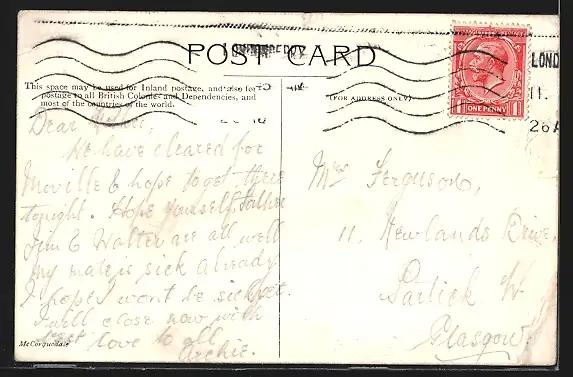 POST CARD
LONDONDERRY
LOND
11.
26 A
This space may be used for Inland postage, and also for
postage to all British Colonies and Dependencies, and
most of the countries of the world.
(FOR ADDRESS ONLY)
1 ONE PENNY 1
Dear Mother,
We have cleared for
Moville & hope to get there
tonight. Hope yourself, Father
Jim & Walter are all well
My mate is sick already
I hope I wont be sick yet.
I will close now with
best love to all
Archie.
Mrs Ferguson,
11. Newlands Drive,
Partick W.
Glasgow.
McCorquodale